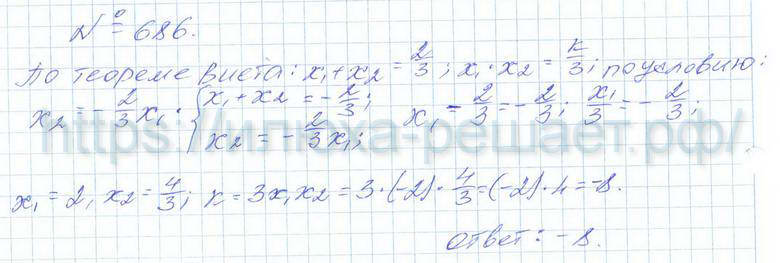 № 686.
По теореме Виета: x₁ + x₂ = 2/3; x₁ · x₂ = k/3; по условию:
x₂ = -2/3 x₁. { x₁ + x₂ = -2/3; x₂ = -2/3 x₁; x₁ - 2/3 = -2/3; x₁/3 = -2/3;
https://илюха-решает.рф/
x₁ = 2, x₂ = 4/3; k = 3x₁x₂ = 3 · (-2) · 4/3 = (-2) · 4 = -8.
Ответ: -8.